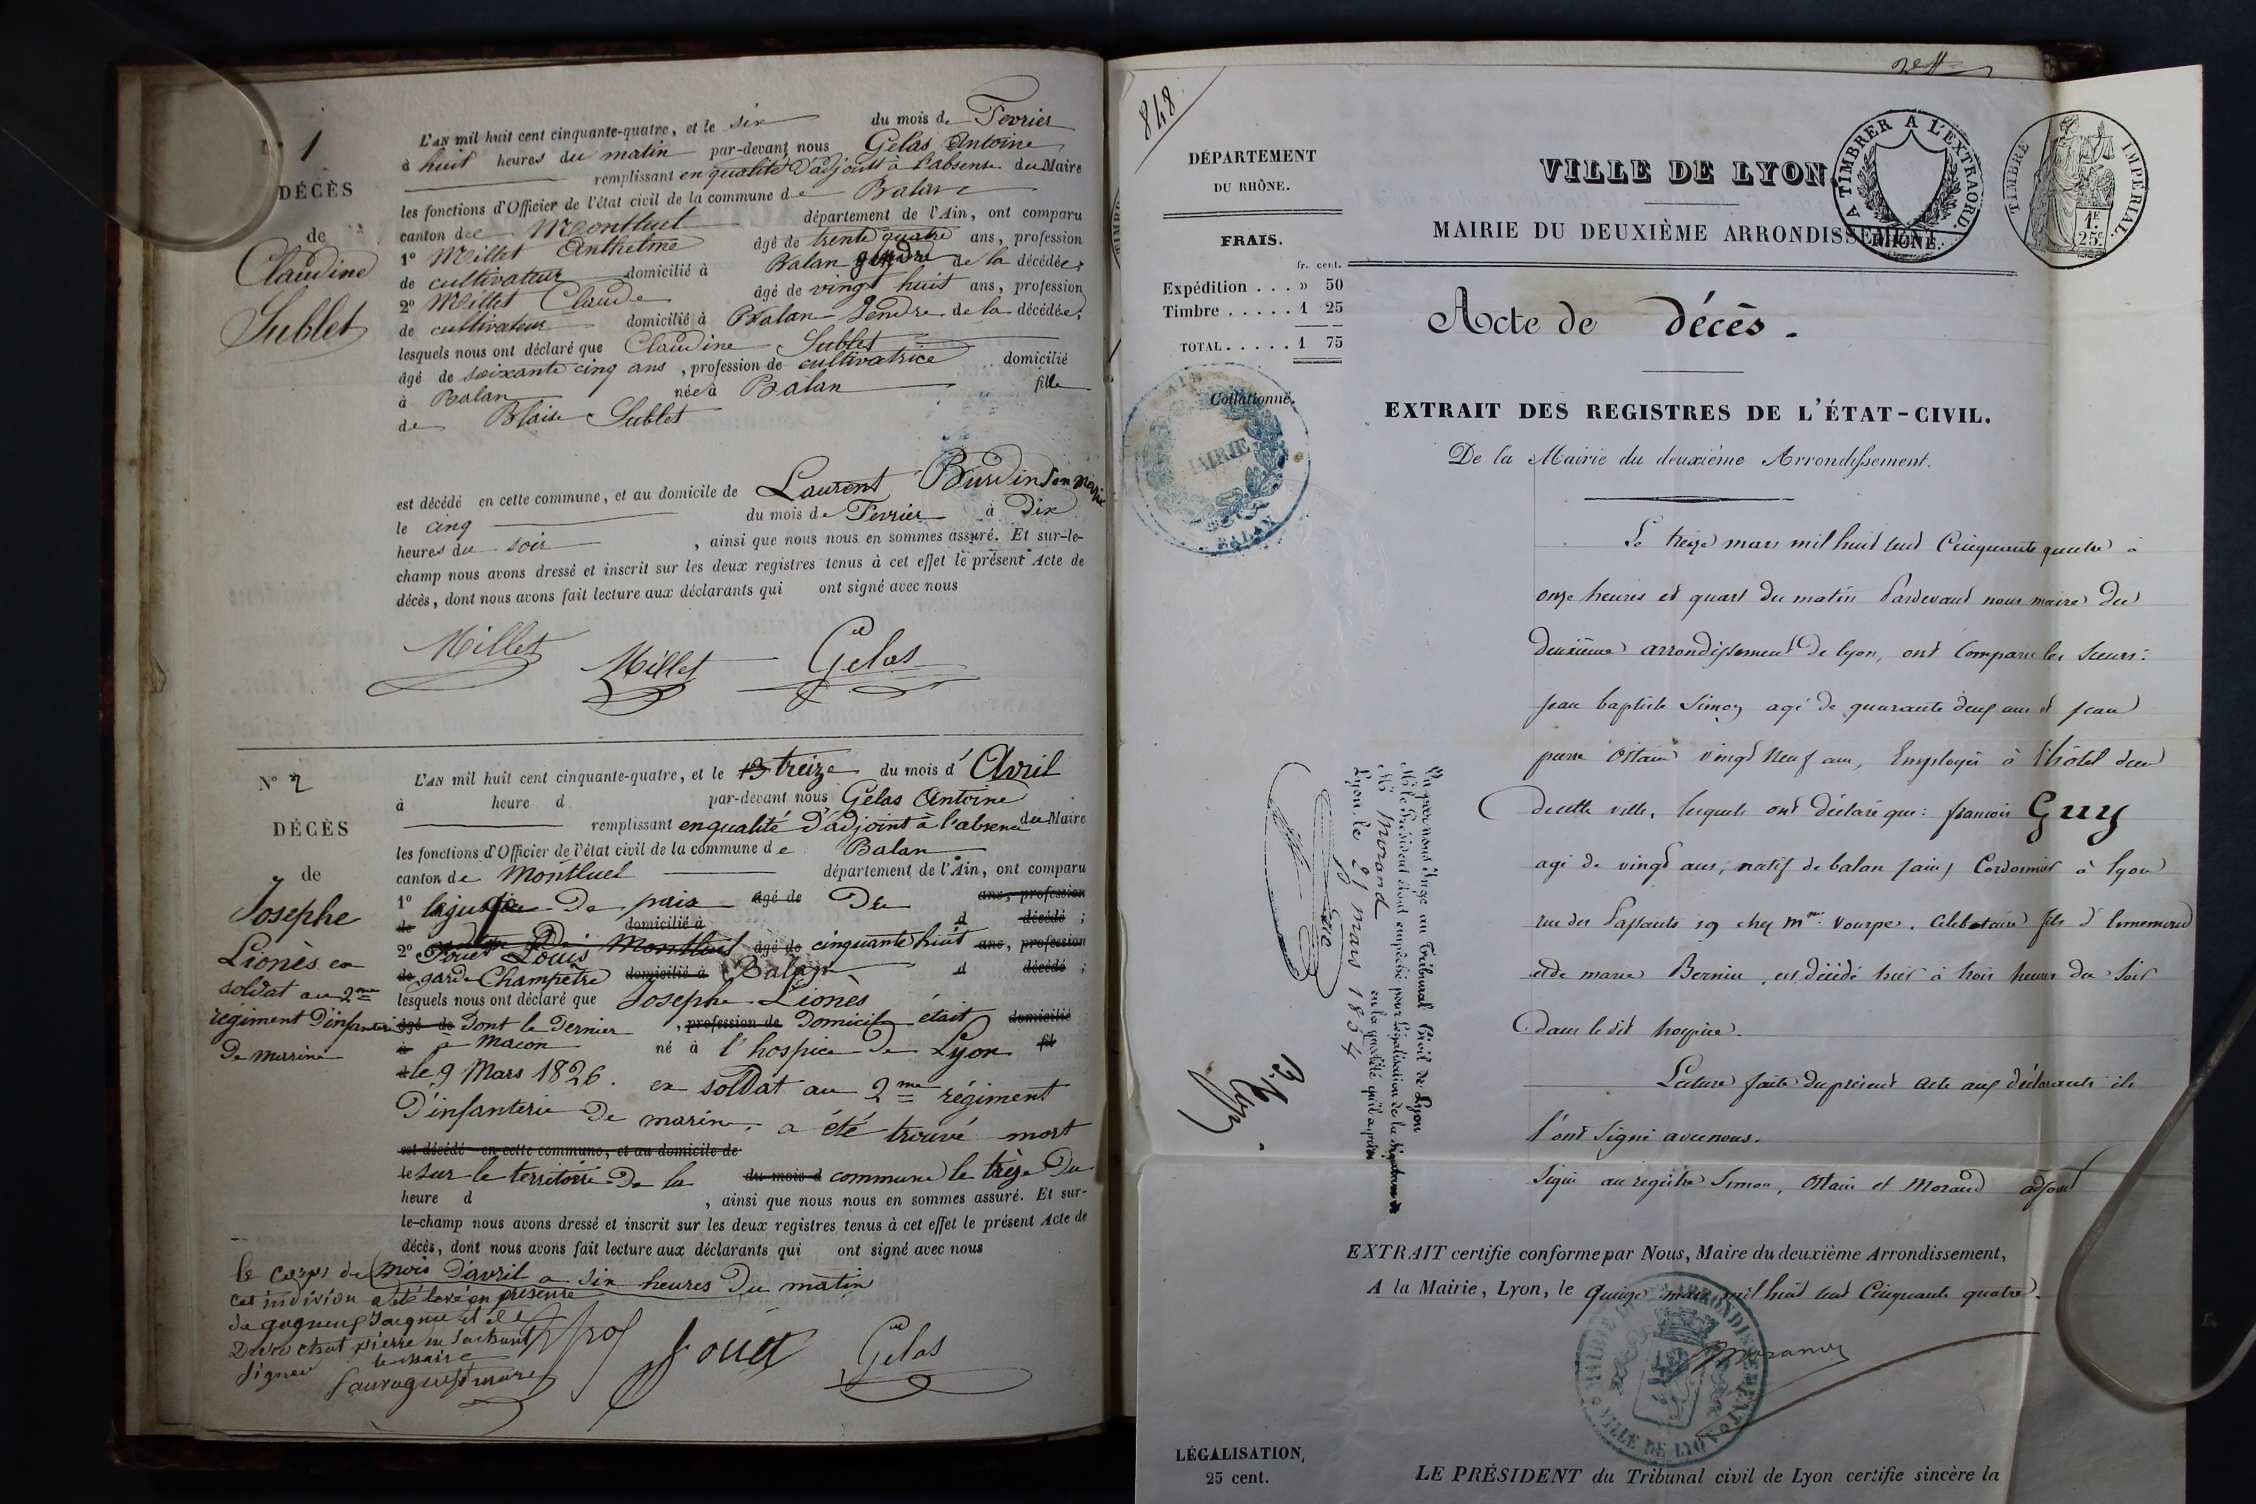 N° 1
DÉCÈS
de
Claudine
Sublet
L'AN mil huit cent cinquante-quatre, et le six du mois de Fevrier
à huit heures du matin par-devant nous Gelas Antoine
remplissant en qualité d'adjoint à l'absense du Maire
les fonctions d'Officier de l'état civil de la commune de Balan
canton de Montluel département de l'Ain, ont comparu
1° Millet Anthelme âgé de trente quatre ans, profession
de cultivateur domicilié à Balan gendre de la décédée;
2° Millet Claude âgé de vingt huit ans, profession
de cultivateur domicilié à Balan Gendre de la décédée;
lesquels nous ont déclaré que Claudine Sublet
âgé de soixante cinq ans, profession de cultivatrice domicilié
à Balan née à Balan fille
de Blaise Sublet
est décédé en cette commune, et au domicile de Laurent Burdin son
le cinq du mois de Fevrier à Dix
heures du soir, ainsi que nous nous en sommes assuré. Et sur-le-
champ nous avons dressé et inscrit sur les deux registres tenus à cet effet le présent Acte de
décès, dont nous avons fait lecture aux déclarants qui ont signé avec nous
Millet Millet Gelas
N° 2
DÉCÈS
de
Josephe
Lionès ex
soldat au 2me
regiment D'infanterie
De marine
L'AN mil huit cent cinquante-quatre, et le 13 treize du mois d'Avril
à heure d par-devant nous Gelas Antoine
remplissant en qualité d'adjoint à l'absence du Maire
les fonctions d'Officier de l'état civil de la commune de Balan
canton de Montluel département de l'Ain, ont comparu
1° le juge De paix âgé de De ans, profession
de domicilié à d décédé;
2° Montluel Jouet Louis âgé de cinquante huit ans, profession
de garde Champetre domicilié à Balan d décédé;
lesquels nous ont déclaré que Josephe Lionès
âgé de Dont le Dernier, profession de Domicile était domicilié
à a Macon né à l'hospice De Lyon fil
le 9 Mars 1826. ex soldat au 2me régiment
D'infanterie De marine. a été trouvé mort
est décédé en cette commune, et au domicile de
le sur le territoire De la du mois d commune le treize Du
heure d, ainsi que nous nous en sommes assuré. Et sur-
le-champ nous avons dressé et inscrit sur les deux registres tenus à cet effet le présent Acte de
décès, dont nous avons fait lecture aux déclarants qui ont signé avec nous
mois D'avril a six heures Du matin
le corps de
cet individu a été levé en présence
pierre ne sachant
signer le maire
Jouet Gelas
848
DÉPARTEMENT
DU RHÔNE.
FRAIS.
fr. cent.
Expédition . . . » 50
Timbre . . . . . 1 25
TOTAL . . . . . 1 75
Collationné.
MAIRIE
BALAN
VILLE DE LYON
MAIRIE DU DEUXIÈME ARRONDISSEMENT
A TIMBRER A L'EXTRAORD.
RHÔNE.
TIMBRE IMPÉRIAL.
1F. 25c
Acte de décès.
EXTRAIT DES REGISTRES DE L'ÉTAT-CIVIL.
De la Mairie du deuxième Arrondissement.
Le treize mars mil huit cent Cinquante quatre à
onze heures et quart du matin Pardevant nous maire du
deuxième arrondissement de lyon, ont Comparu les sieurs:
jean baptiste Simon agé de quarante deux ans et jean
pierre Ostain vingt neuf ans, Employés à l'hôtel dieu
de cette ville, lesquels ont déclaré que: françois Guy
agé de vingt ans, natif de balan (ain) Cordonnier à lyon
rue des Passants 19 chez Mme Vourpe. Celibataire fils d'
et de marie Bernin, est décédé hier à trois heures du soir
dans le dit hospice.
Lecture faite du présent acte aux déclarants ils
l'ont signé avec nous.
signé au registre Simon, Ostain et Morand adjoint
EXTRAIT certifié conforme par Nous, Maire du deuxième Arrondissement,
A la Mairie, Lyon, le quinze mars mil huit cent Cinquante quatre.
MAIRIE DU 2E ARRONDISSEMENT
VILLE DE LYON
Morand
Vu par nous Juge au Tribunal Civil de Lyon
Mr le Président étant empêché pour légalisation de la signature de
Mr Morand en la qualité qu'il a prise
Lyon, le 21 mars 1854
LÉGALISATION,
25 cent.
LE PRÉSIDENT du Tribunal civil de Lyon certifie sincère la